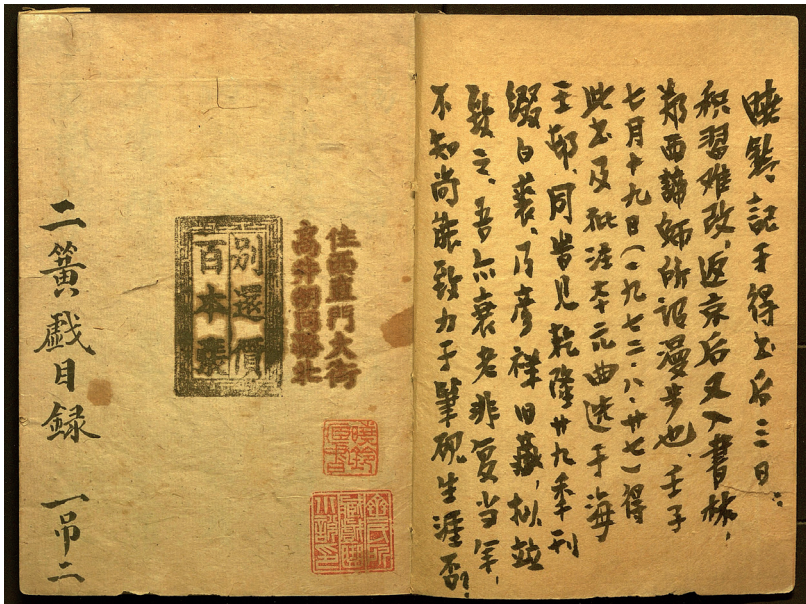 曉鈴，記于得书后三日：
积習难改，返京后又入書林，
郑西諦师所谓漫步也。壬子
七月十九日（一九七二·八·廿七）得
此书及批注本元曲选于海
王邨，同时见乾隆廿九年刊
缀白裘，乃彦祥旧藏，拟並
致之。吾亦衰老非复当年，
不知尚能致力于筆砚生涯否？
住西直門大街
高井胡同路北
别還價
百本張
曉鈴
藏書
二簧戯目録 一吊二